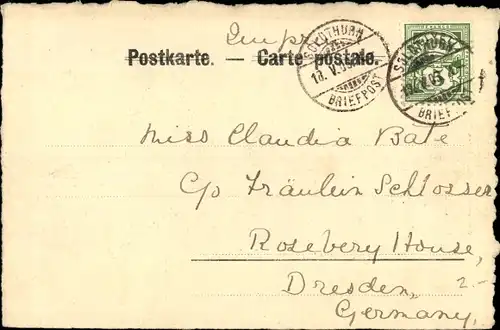 Impr.
Postkarte. — Carte postale.
SOLOTHURN
18. V. 05.
BRIEFPOST
SOLOTHURN
BRIEFPOST
5
Miss Claudia Bate
c/o Fräulein Schlosser
Rosebery House,
Dresden,
2.-
Germany.